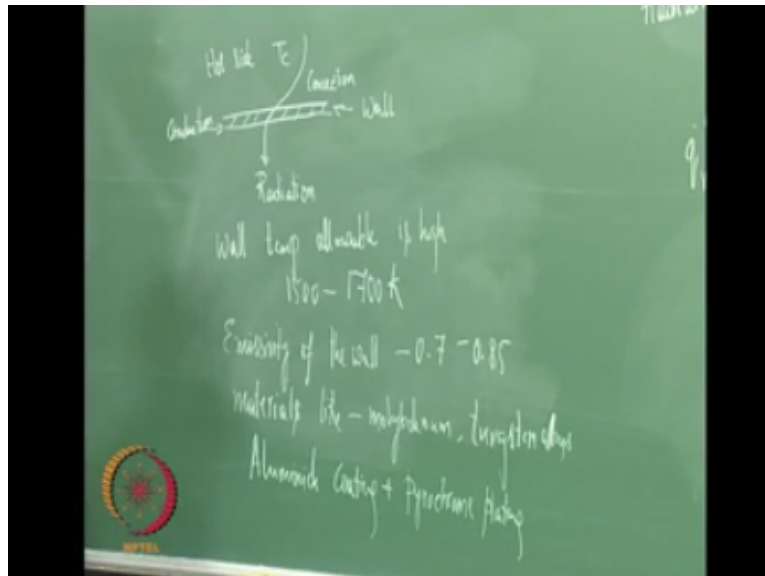 Hot side Tc
Convection
Conduction
Wall
Radiation
q̇
Wall temp allowable is high
1500 – 1700 K
Emissivity of the wall – 0.7 – 0.85
Materials like – molybdenum, tungsten alloys
Aluminide Coating + Pyrochrome plating
NPTEL